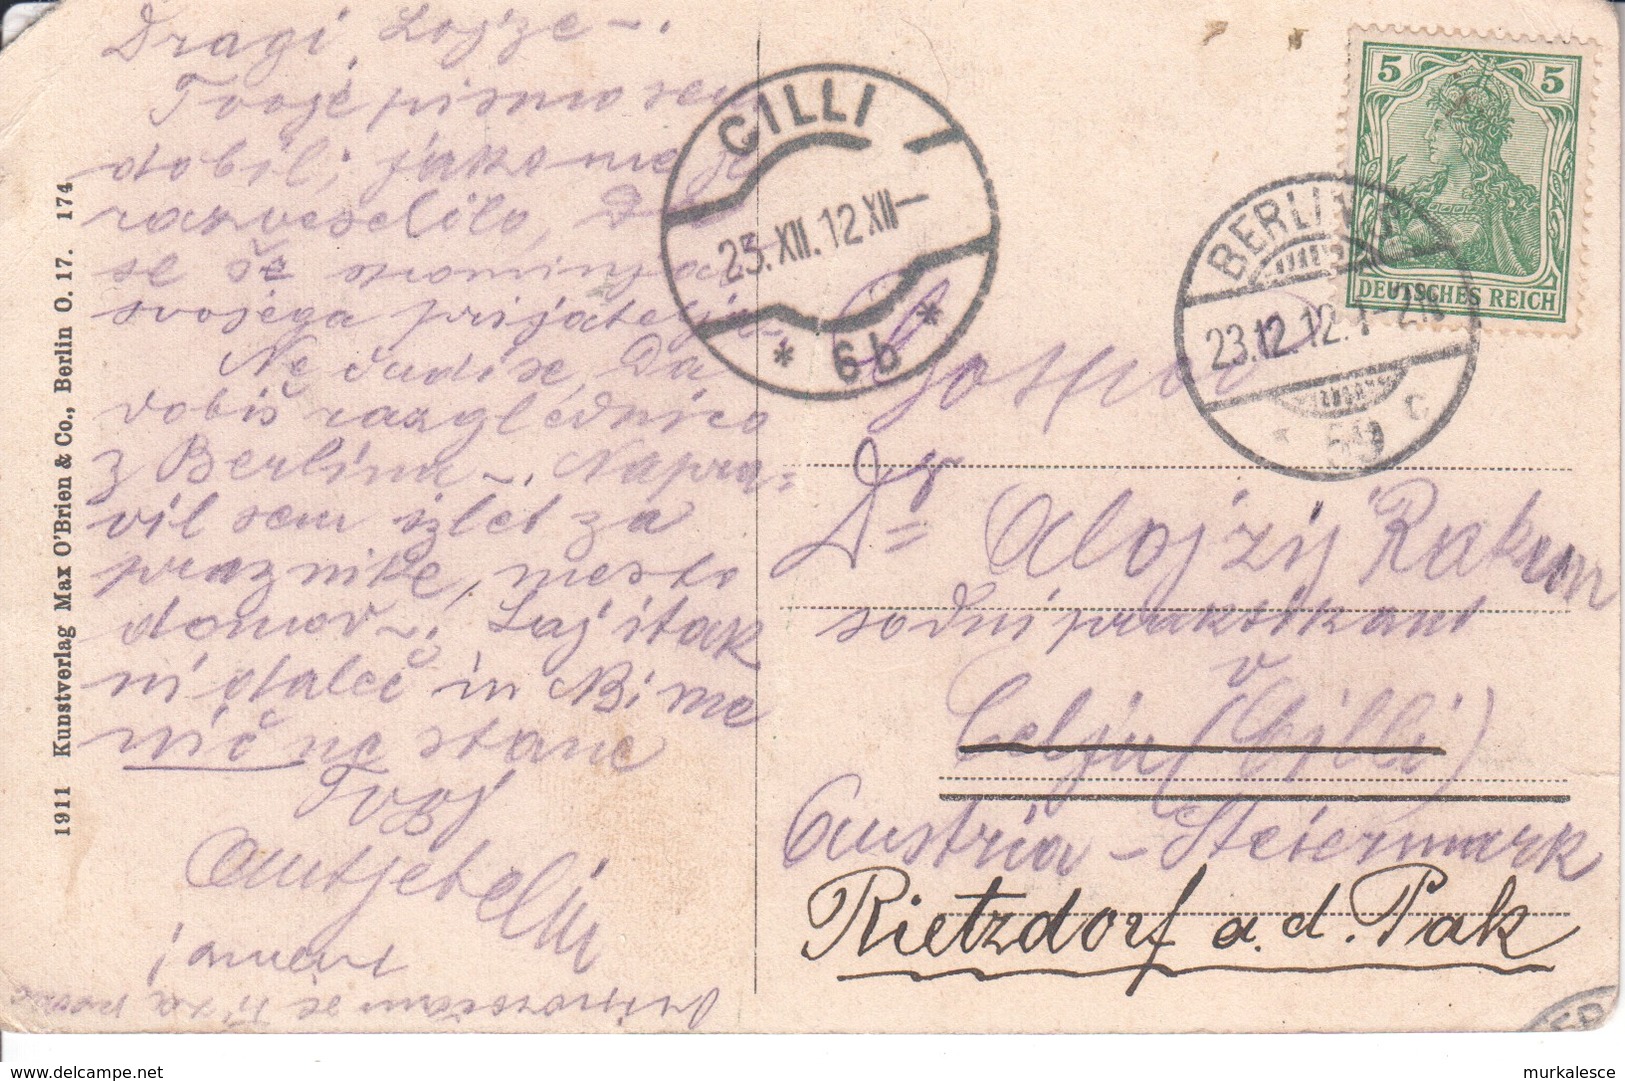 Dragi Lojze –.
Tvoje pismo sem
dobil; jako me je
razveselilo, Da
se še spominjaš
svojega prijatelja.
Ne čudi se, Da
dobiš razglednico
z Berlina –. Napra=
vil sem izlet za
praznike, mesto
domov –. Saj itak
ni daleč in Bi me
nič ne stane
Tvoj
i
zahvaljujem se Ti za
1911 Kunstverlag Max O'Brien & Co., Berlin O. 17. 174
CILLI
25.XII.12 XII–
* 6b *
BERLIN
23.12.12. 1–2N
* 59 c
5 5
DEUTSCHES REICH
Gospod
Dr. Alojzij Rakun
sodni praktikant
v
Celju (Cilli)
Austria – Steiermark
Rietzdorf a. d. Pak
delcampe.net
murkalesce